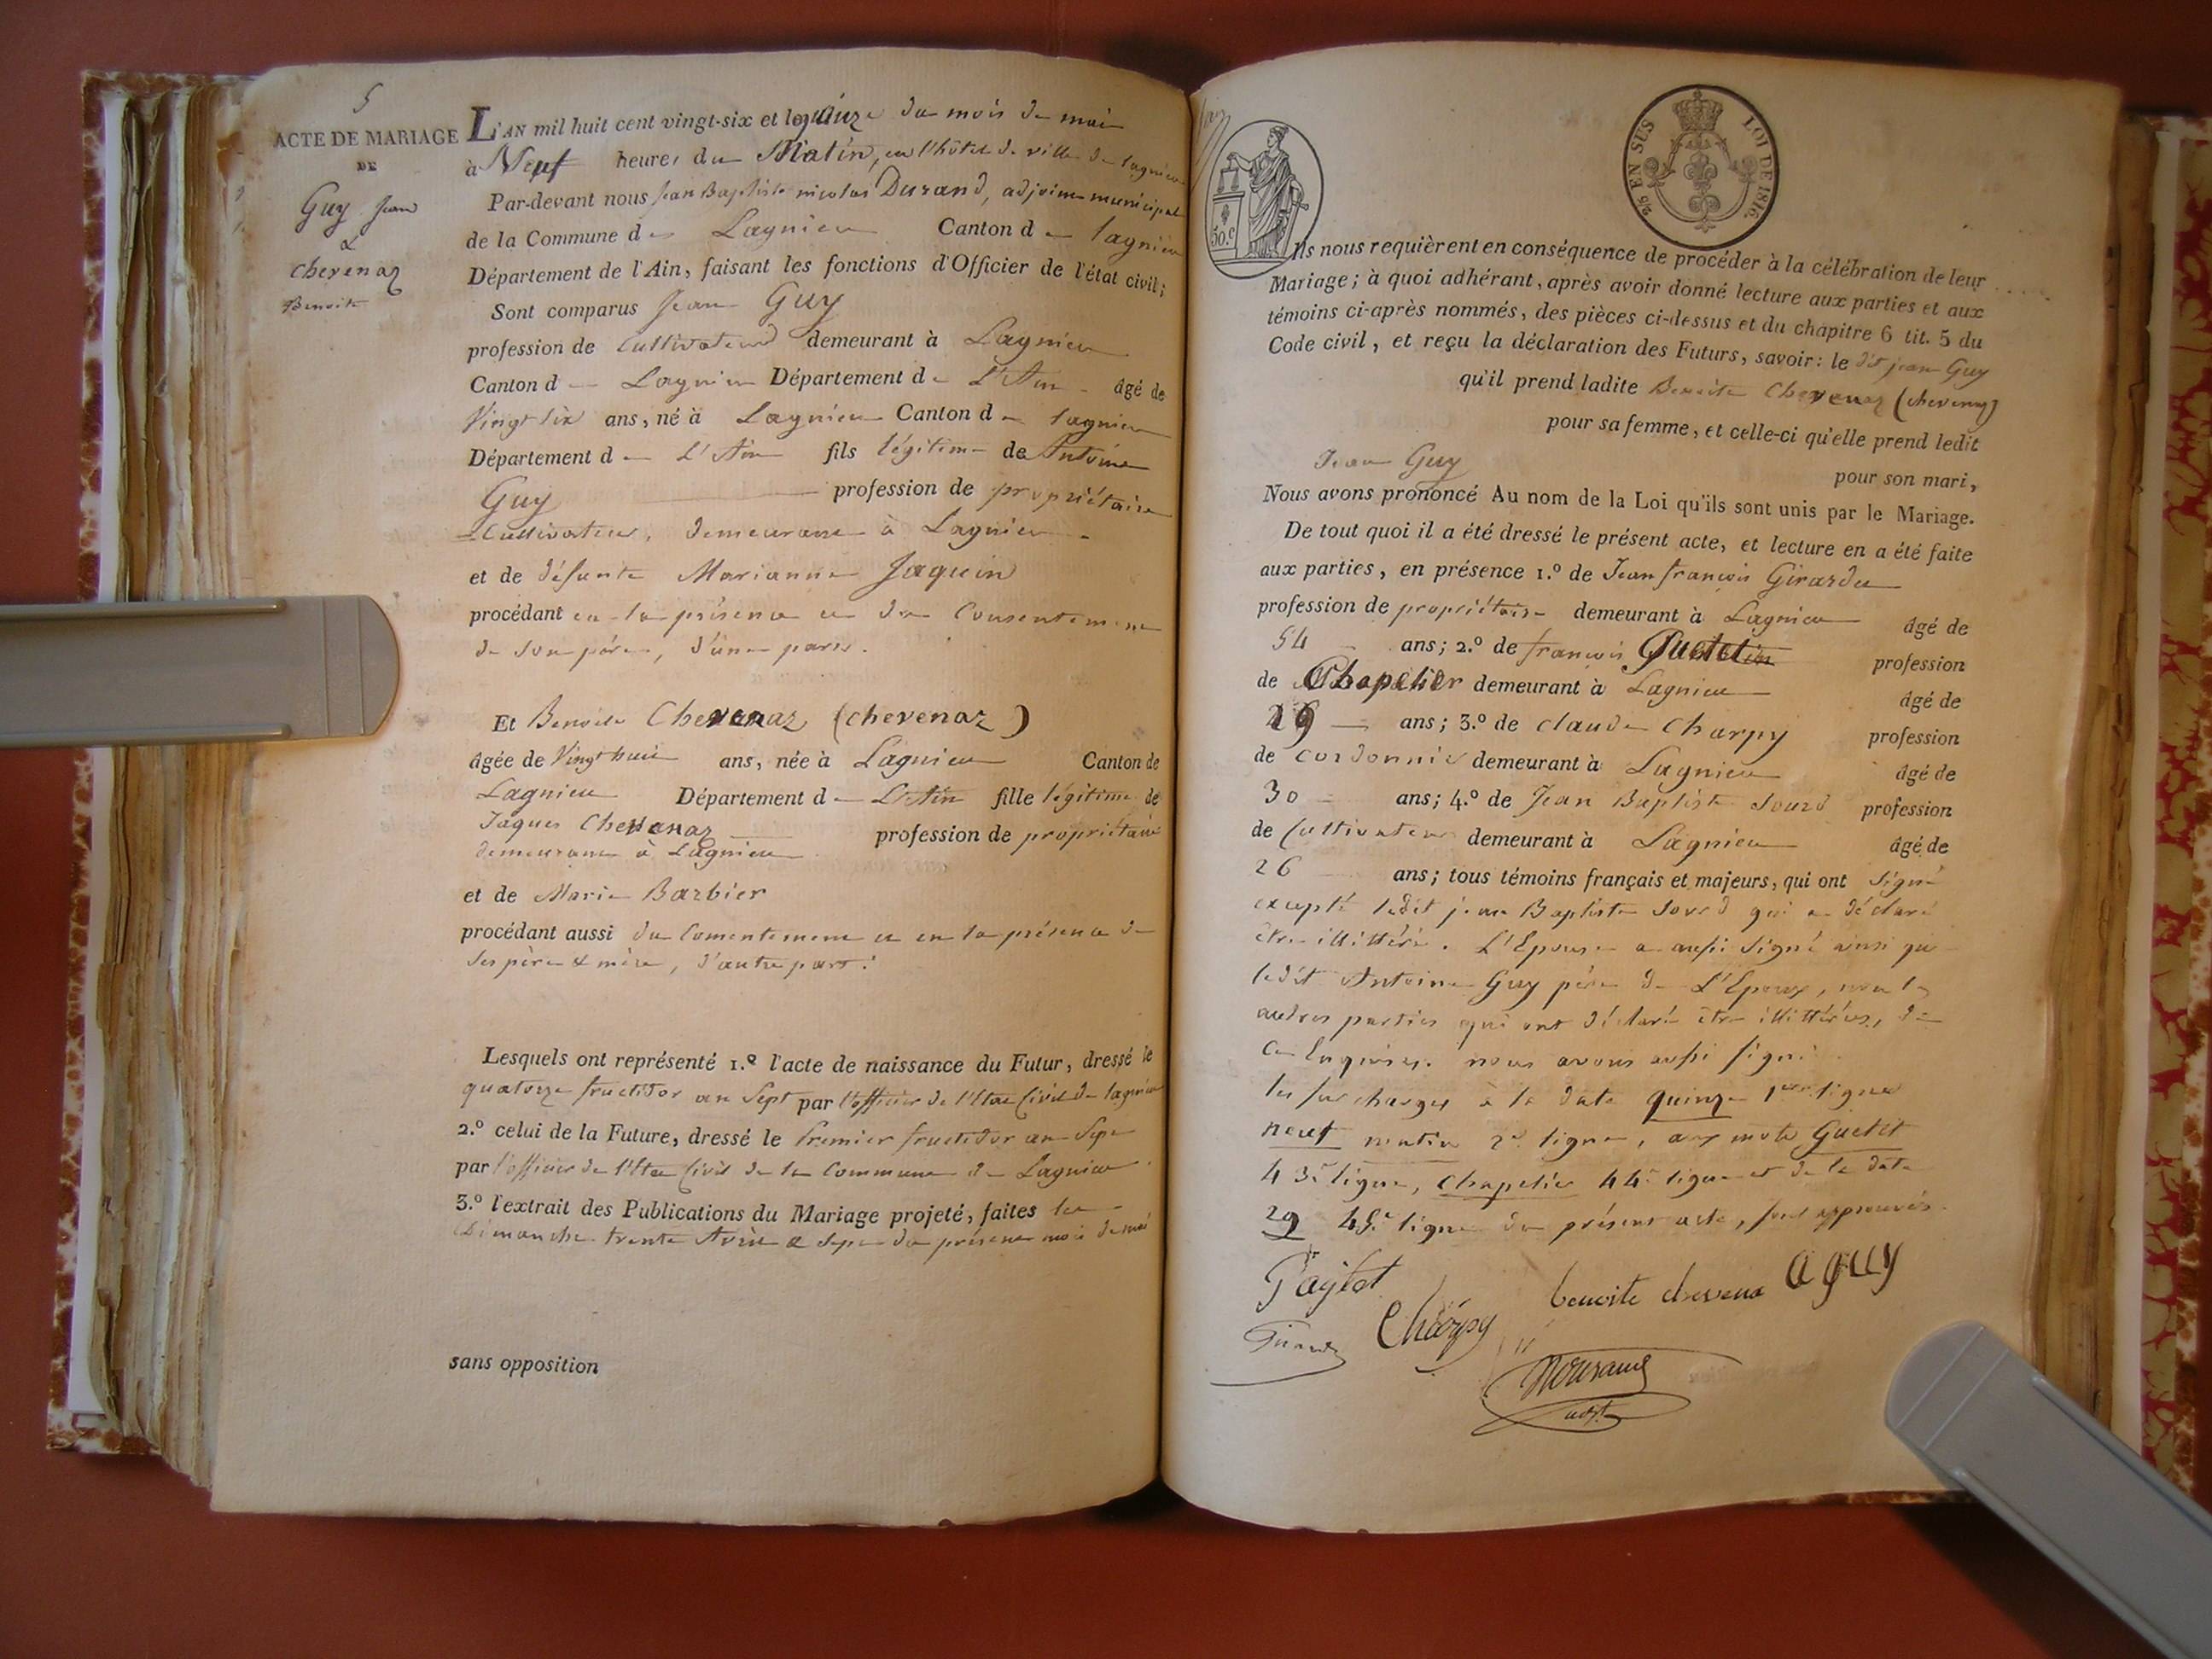 5
ACTE DE MARIAGE
DE
Guy Jean
&
chevenaz
Benoite
L'AN mil huit cent vingt-six et le quinze du mois de mai
à Neuf heures du Matin, en l'hôtel de ville de lagnieu
Par-devant nous Jean Baptiste nicolas Durand, adjoint municipal
de la Commune de Lagnieu Canton de lagnieu
Département de l'Ain, faisant les fonctions d'Officier de l'état civil;
Sont comparus Jean Guy
profession de Cultivateur demeurant à Lagnieu
Canton de Lagnieu Département de L'Ain âgé de
Vingt six ans, né à Lagnieu Canton de lagnieu
Département de L'Ain fils légitime de Antoine
Guy profession de propriétaire
Cultivateur, demeurant à Lagnieu
et de défunte Marianne Jaquin
procédant en la présence et du Consentement
de son père, d'une part.
Et Benoite Chevenaz (chevenaz)
âgée de Vingt huit ans, née à Lagnieu Canton de
Lagnieu Département de L'Ain fille légitime de
Jaques Chevenaz profession de propriétaire
demeurant à Lagnieu
et de Marie Barbier
procédant aussi du Consentement et en la présence de
ses père & mère, d'autre part.
Lesquels ont représenté 1.º l'acte de naissance du Futur, dressé le
quatorze fructidor an Sept par l'officier de l'Etat Civil de lagnieu
2.º celui de la Future, dressé le Premier fructidor an Sept
par l'officier de l'Etat Civil de la Commune de Lagnieu.
3.º l'extrait des Publications du Mariage projeté, faites les
Dimanche trente Avril & sept du présent mois de mai
sans opposition
50.c
2/5 EN SUS
LOI DE 1816.
Ils nous requièrent en conséquence de procéder à la célébration de leur
Mariage; à quoi adhérant, après avoir donné lecture aux parties et aux
témoins ci-après nommés, des pièces ci-dessus et du chapitre 6 tit. 5 du
Code civil, et reçu la déclaration des Futurs, savoir: le dit jean Guy
qu'il prend ladite Benoite Chevenaz (chevenaz)
pour sa femme, et celle-ci qu'elle prend ledit
Jean Guy pour son mari,
Nous avons prononcé Au nom de la Loi qu'ils sont unis par le Mariage.
De tout quoi il a été dressé le présent acte, et lecture en a été faite
aux parties, en présence 1.º de Jean françois Girardu
profession de propriétaire demeurant à Lagnieu âgé de
54 ans; 2.º de françois profession
de Chapelier demeurant à Lagnieu âgé de
29 ans; 3.º de claude Charpy profession
de cordonnier demeurant à Lagnieu âgé de
30 ans; 4.º de Jean Baptiste Sourd profession
de Cultivateur demeurant à Lagnieu âgé de
26 ans; tous témoins français et majeurs, qui ont signé
excepté ledit jean Baptiste Sourd qui a déclaré
être illittéré. L'Epouse a aussi signé ainsi que
ledit Antoine Guy père de L'Epoux, non les
autres parties qui ont déclaré être illittérées, de
ce Enquises. nous avons aussi signé.
les surcharges à la date quinze 1ere ligne
neuf matin 2e ligne, aux mots Guetet
43e ligne, chapelier 44e ligne et de la date
29 45e ligne du présent acte, sont approuvés.
Charpy benoite chevena a guy